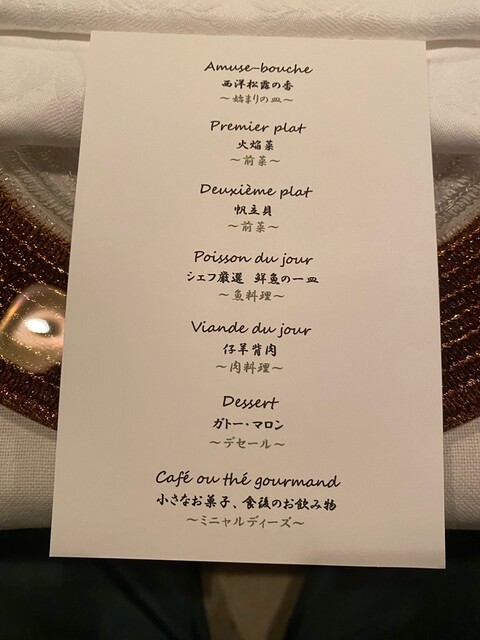 Amuse-bouche
西洋松露の香
～始まりの皿～
Premier plat
火焔菜
～前菜～
Deuxième plat
帆立貝
～前菜～
Poisson du jour
シェフ厳選 鮮魚の一皿
～魚料理～
Viande du jour
仔羊背肉
～肉料理～
Dessert
ガトー・マロン
～デセール～
Café ou thé gourmand
小さなお菓子、食後のお飲み物
～ミニャルディーズ～